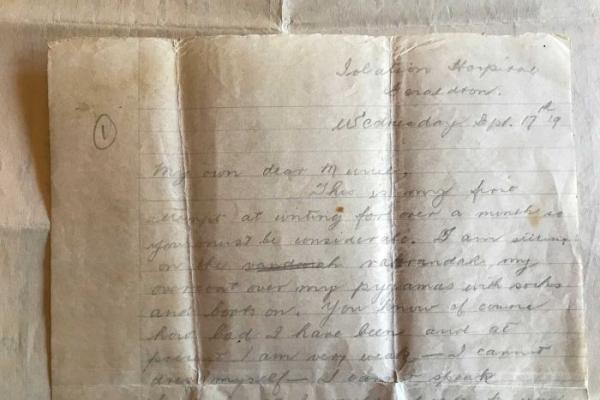 Isolation Hospital
Geraldton.
Wednesday Sept. 17th 19
1
My own dear
This is my first
attempt at writing for over a month so
you must be considerate. I am sitting
on the verandah, my
overcoat over my pyjamas with socks
and boots on. You know of course
how bad I have been and at
present I am very weak — I cannot
dress myself — I cannot speak